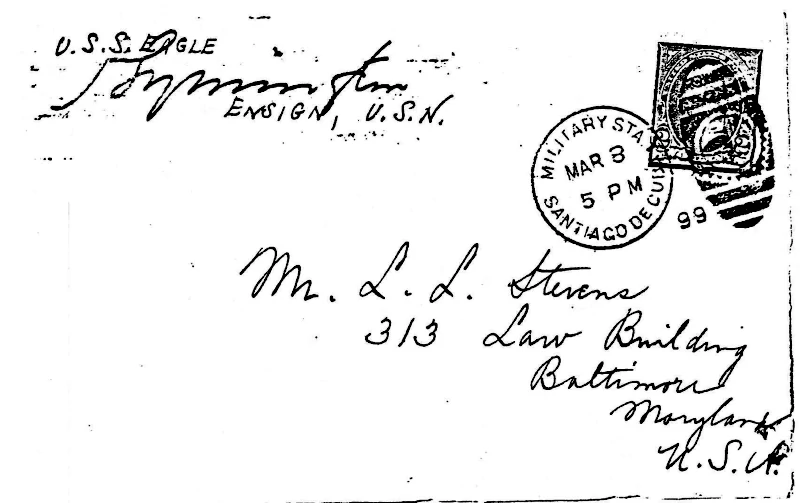 U.S.S. EAGLE
Symington
ENSIGN, U.S.N.
MILITARY STA.
MAR 8
5 PM
SANTIAGO DE CUBA
99
Mr. L. L. Stevens
313 Law Building
Baltimore
Maryland
U.S.A.